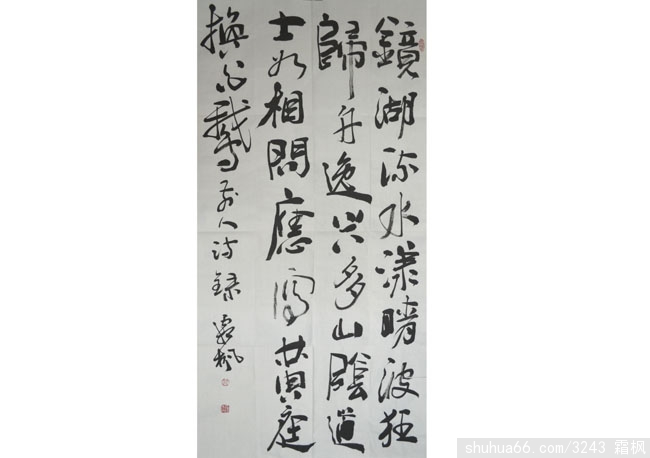 鏡湖流水漾晴波狂
歸舟逸兴多山陰道
士如相問應写黄庭
換白鵝 前人诗録 霜枫
shuhua66.com/3243 霜枫